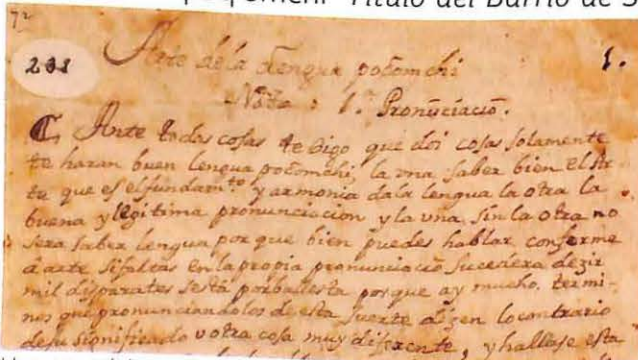 Título del Barrio de S
72
201
Arte de la lengua pocomchi
1.
Nota. 1.ª Pronũciaciõ.
Ante todas cosas te digo que dos cosas solamente
te haran buen lengua pocomchi, la vna saber bien el Ar
te que es el fundam.to y armonia dala lengua la otra la
buena y legitima pronunciacion y la vna sin la otra no
sera saber lengua porque bien puedes hablar conforme
el arte si faltas en la propia pronunciaciõ sucediera dezir
mil disparates porque ay mucho. termi-
nos que pronunciandolos de esta suerte dizen lo contrario
de su significado v otra cosa muy diferente, y hallase esta